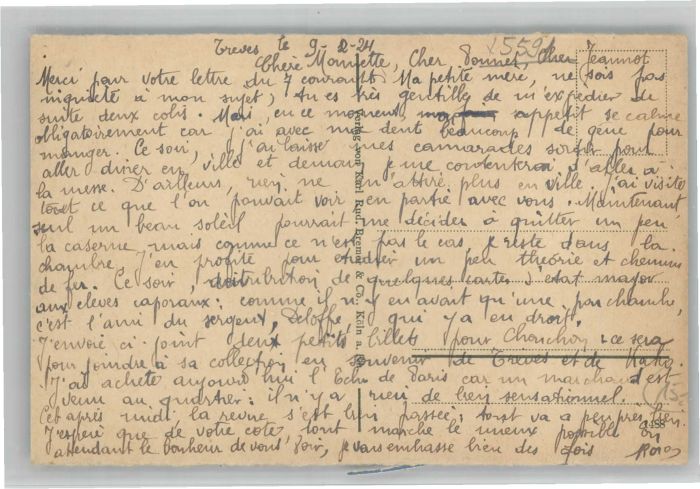 Treves le 9-2-24
(5595
Chère Mamette, Cher Jeannot
Merci pour votre lettre du 7 courant. Ma petite mère, ne sois pas
inquiète à mon sujet; tu es très gentille de m'expédier de
suite deux colis. Mais, en ce moment, appetit se calme
obligatoirement car j'ai avec ma dent beaucoup de gêne pour
manger. Ce soir, j'ai laissé mes camarades sortir pour
aller diner en ville et demain je me contenterai d'aller à
la messe. D'ailleurs, rien ne m'attire plus en ville j'ai visité
tout ce que l'on pouvait voir en partie avec vous. Maintenant
seul un beau soleil pourrait me décider à quitter un peu
la caserne, mais comme ce n'est pas le cas je reste dans la
chambre. J'en profite pour étudier un peu théorie et chemins
de fer. Ce soir, distribution de quelques cartes d'etat major
aux eleves caporaux: comme il n'y en avait qu'une par chambre,
c'est l'ami du sergent, Deloffe, qui y a eu droit.
J'envoie ci-joint deux petits billets pour Chouchou: ce sera
pour joindre à sa collection en souvenir de Treves et de
J'ai acheté aujourd'hui l'Echo de Paris car un marchand est
venu au quartier: il n'y a rien de bien sensationnel.
Cet après midi la revue s'est bien passée; tout va a peu près bien.
J'espère que de votre coté tout marche le mieux possible En
attendant le bonheur de vous voir, je vous embrasse bien des fois
Verlag von Karl Rud. Bremer & Co., Köln a.